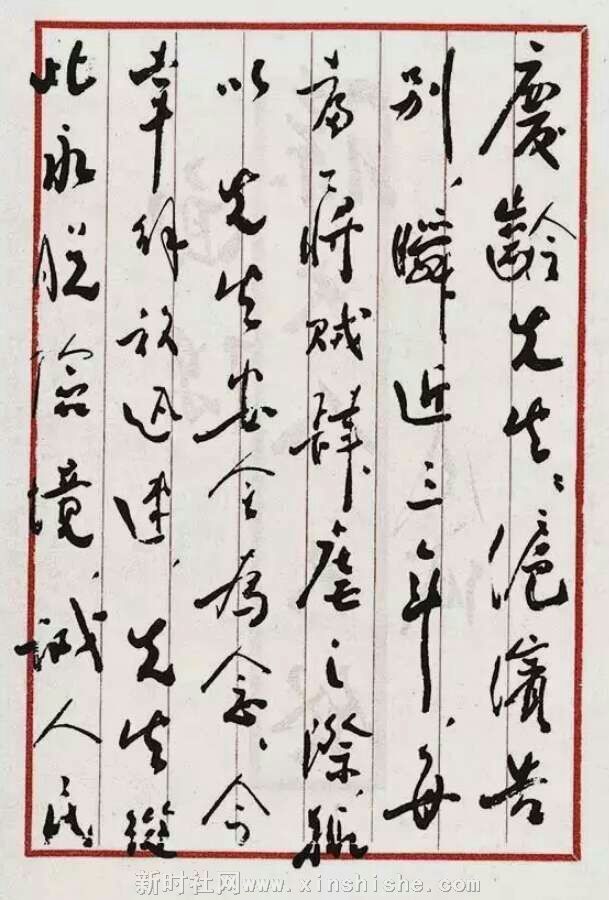 慶齡先生：滬濱告
別，瞬近三年，每
當蔣賊肆虐之際，輒
以先生安全為念。今
幸解放迅速，先生從
此永脫險境，誠人民
新时社网www.xinshishe.com